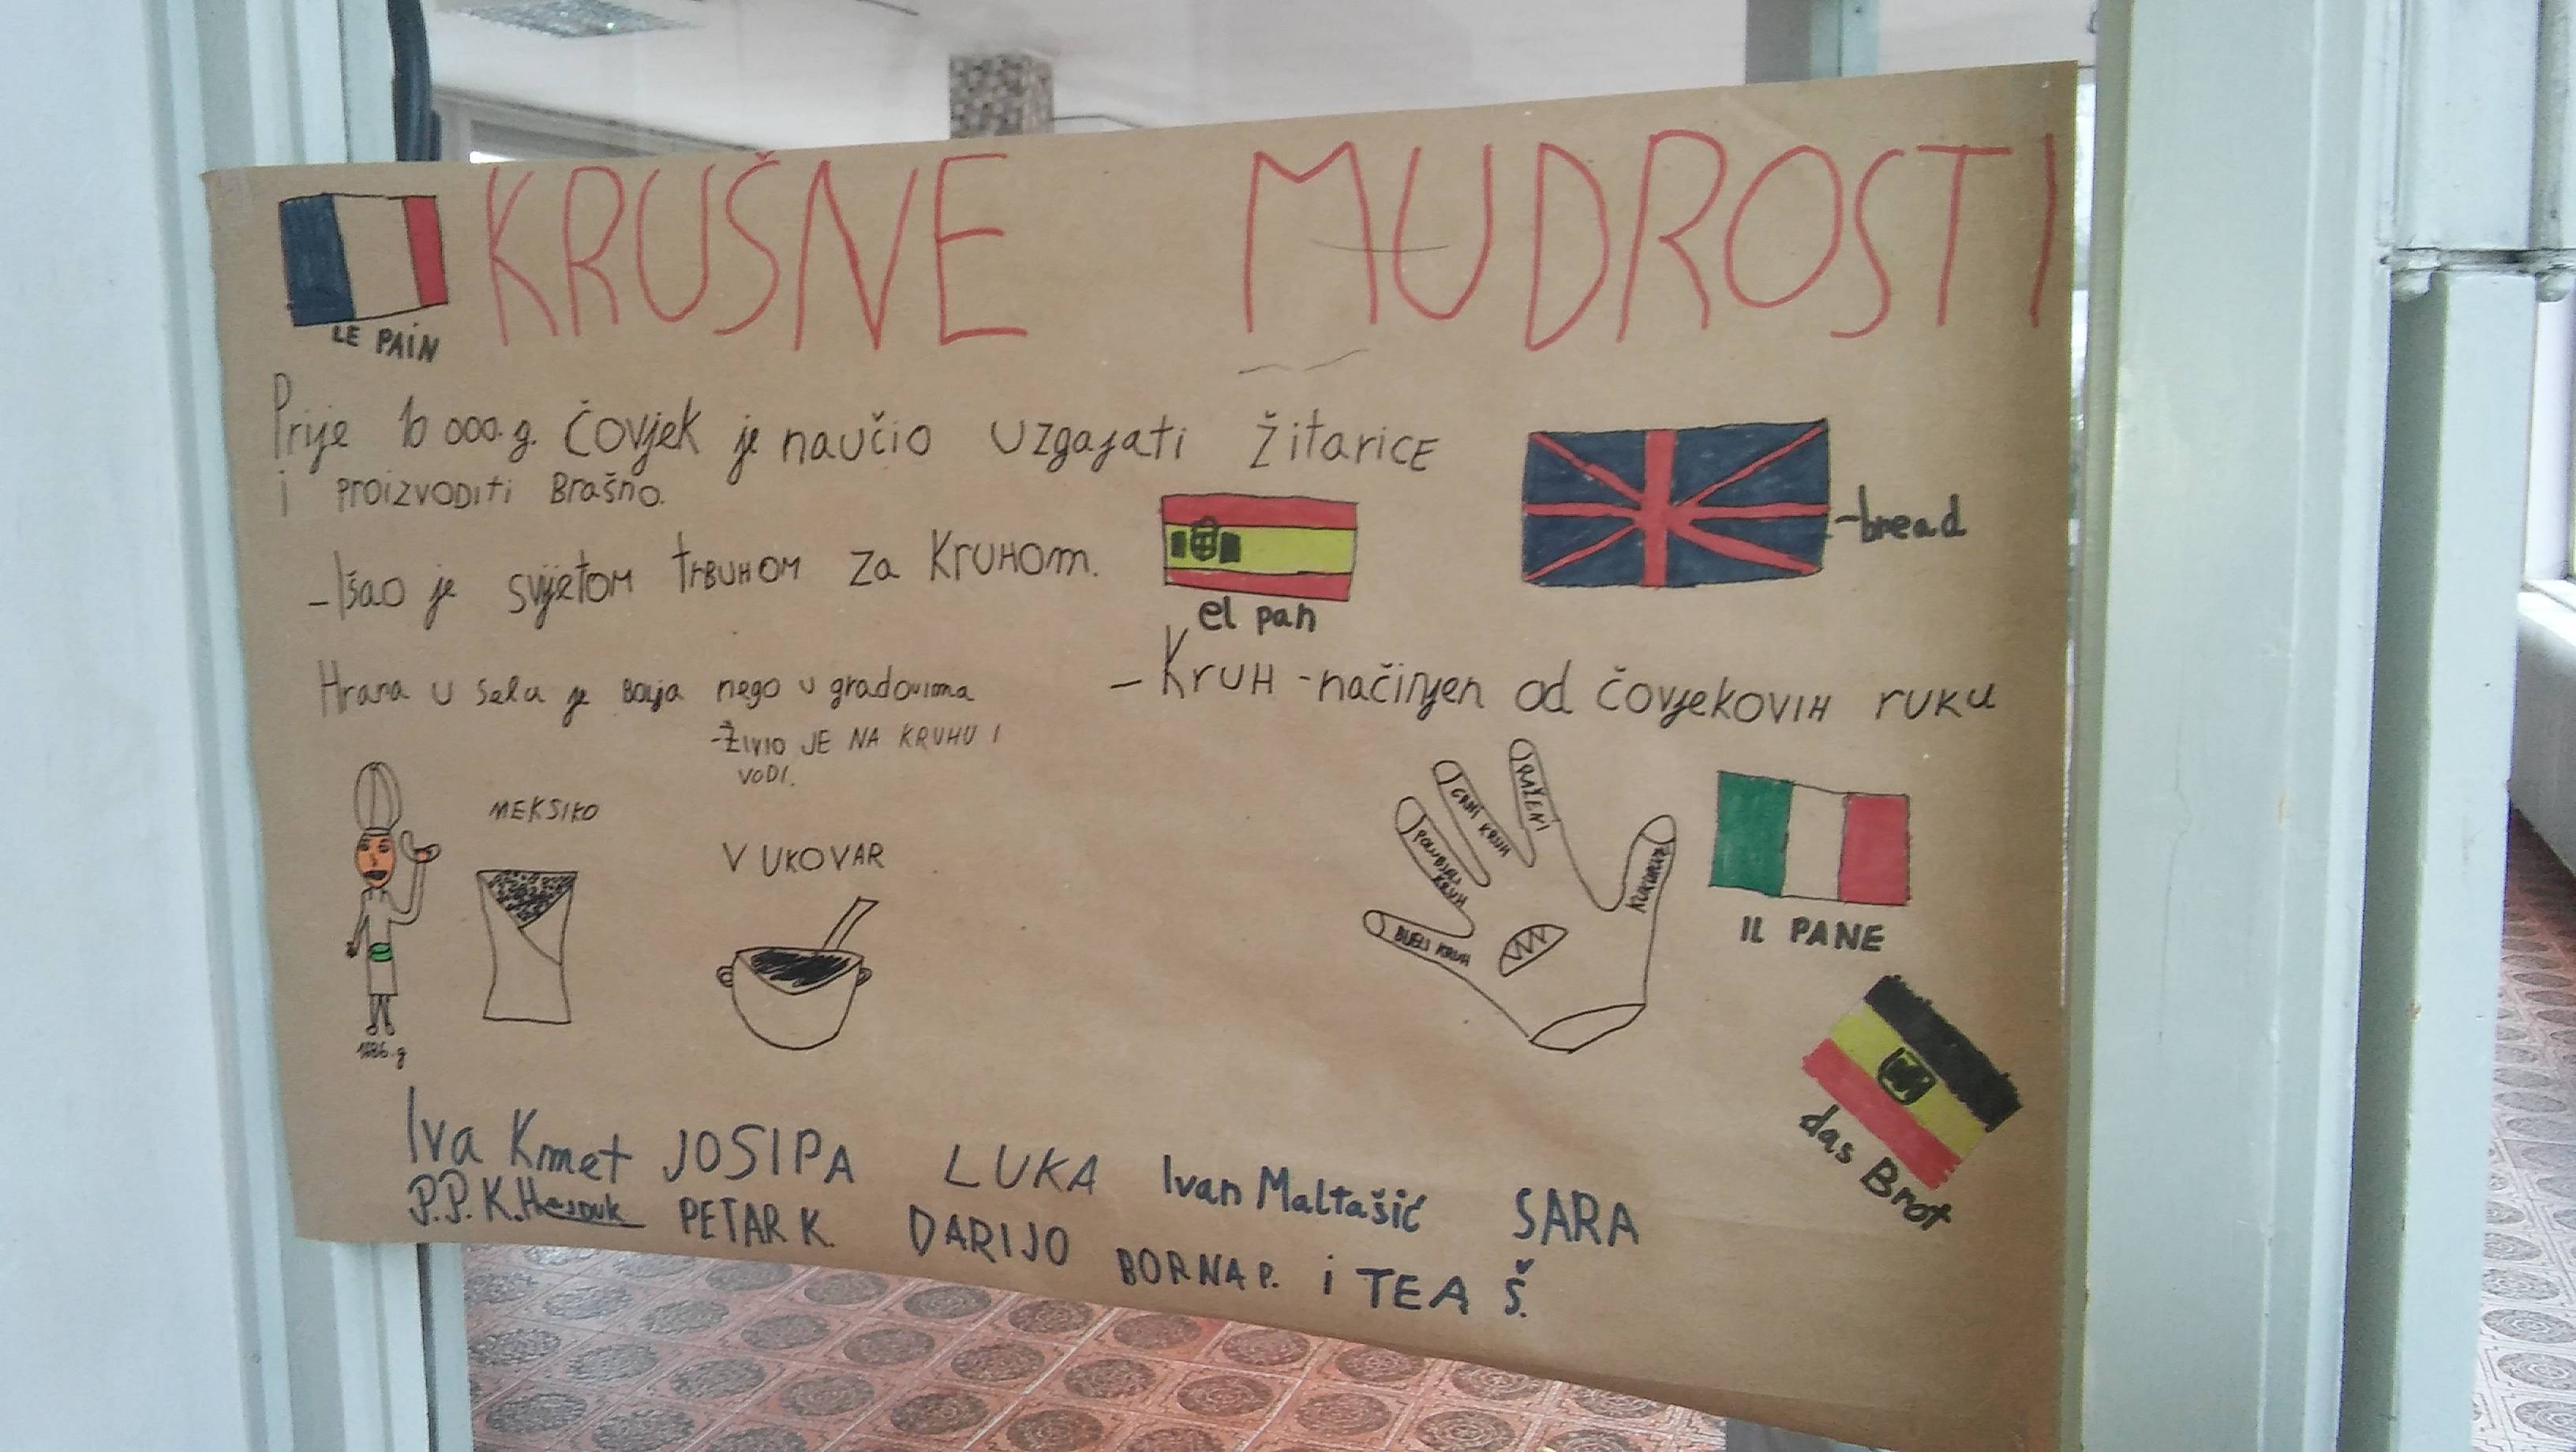 KRUŠNE MUDROSTI
LE PAIN
Prije 10 000.g. čovjek je naučio uzgajati žitarice
i proizvoditi Brašno.
-bread
-Išao je svijetom trbuhom za kruhom.
el pan
Hrana u selu je bolja nego u gradovima
- Kruh -načinjen od čovjekovih ruku
-ŽIVIO JE NA KRUHU I
VODI.
MEKSIKO
VUKOVAR
RAŽENI
CRNI KRUH
KRUH
BIJELI KRUH
IL PANE
das Brot
Iva Kmet JOSIPA LUKA Ivan Maltašić SARA
P.P. K. PETAR K. DARIJO BORNA P. i TEA Š.